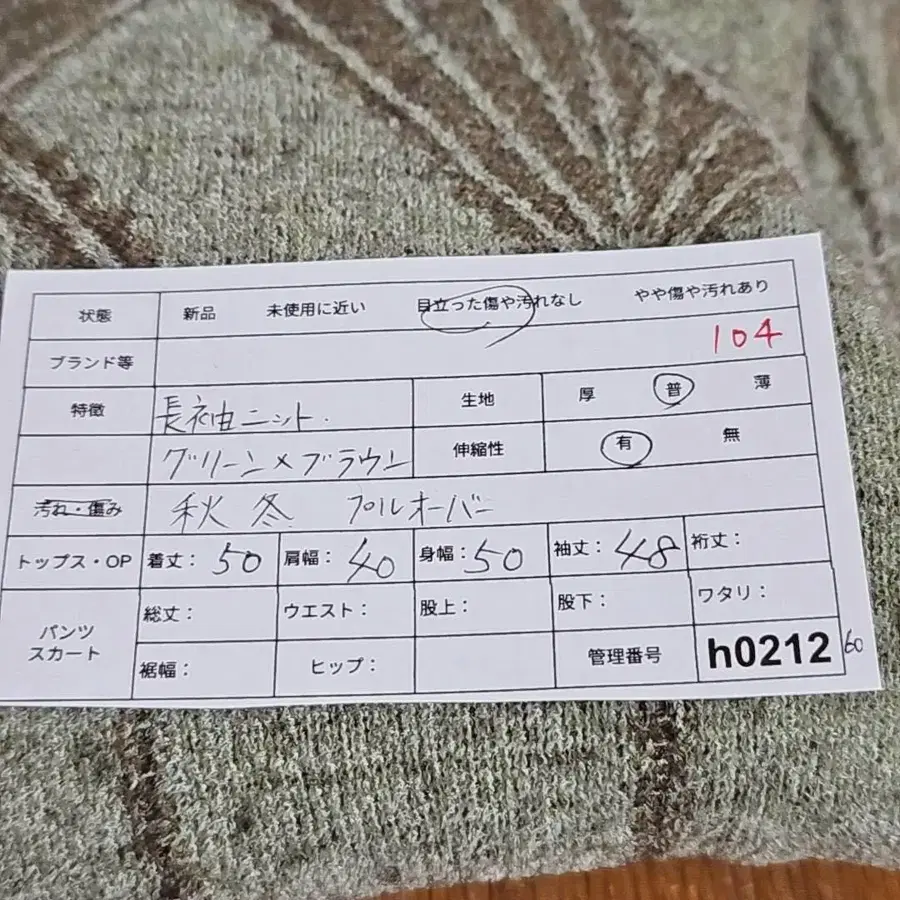 状態 新品 未使用に近い 目立った傷や汚れなし やや傷や汚れあり
ブランド等 104
特徴 長袖ニット. 生地 厚 普 薄
グリーン×ブラウン 伸縮性 有 無
汚れ・傷み 秋冬 プルオーバー
トップス・OP 着丈: 50 肩幅: 40 身幅: 50 袖丈: 48 裄丈:
パンツ スカート 総丈: ウエスト: 股上: 股下: ワタリ:
裾幅: ヒップ: 管理番号 h0212 60